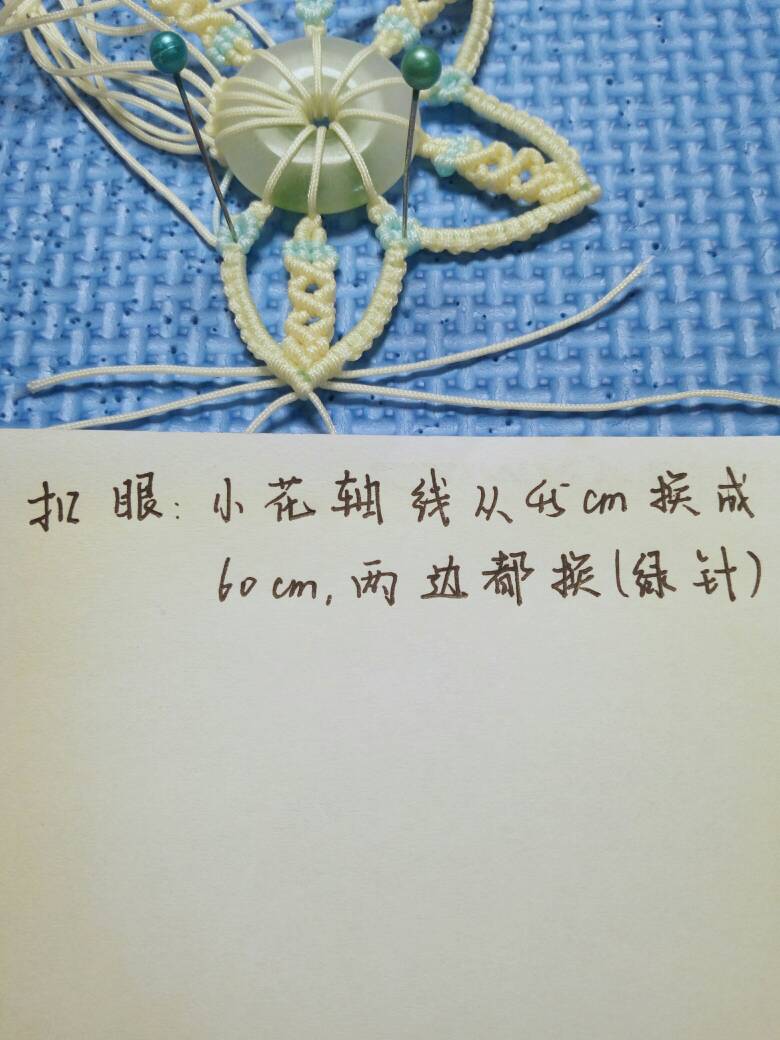 扣眼:小花轴线从45cm换成
60cm,两边都换(绿针)